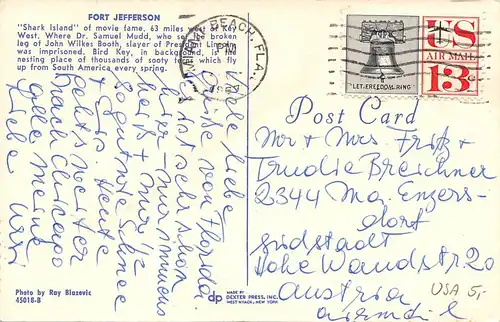 FORT JEFFERSON
"Shark Island" of movie fame, 63 miles west of Key
West, Where Dr. Samuel Mudd, who set the broken
leg of John Wilkes Booth, slayer of President Lincoln
was imprisoned. Bird Key, in background, is the
nesting place of thousands of sooty terns which fly
up from South America every spring.
BEACH, FLA.
PM
US
AIR MAIL
13c
"LET FREEDOM RING"
Viele liebe
Grüße von Florida
ist sehr schön
hier - nur
heiß + nur
So gut wie Schnee
heute. Heute
gehts weiter
nach Chicago
alles
Liebe
Post Card
Mr + Mrs Fritz +
Trudie Breichner
2344 Ma. Enzers-
dorf
Südstadt
Hohe Wandstr. 20
Austria
airmail
USA 5,-
Photo by Ray Blazevic
45018-B
MADE BY
dp DEXTER PRESS, INC.
WEST NYACK, NEW YORK